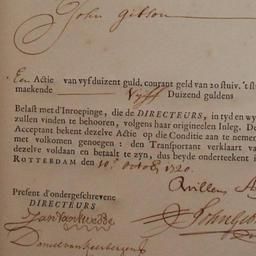 John Gibson
Een Actie van vyf duizent guld. courant geld van 20 stuiv. 't st
makende Vyff Duizend guldens
Belast met d'Inroepinge, die de DIRECTEURS, in tyd en wy
zullen vinden te behooren, volgens haar origineelen Inleg. De
Acceptant bekent dezelve Actie op die Conditie aan te neme
met volkomen genoegen: den Transportant verklaart va
dezelve voldaan en betaalt te zyn, dus beyde onderteekent i
ROTTERDAM den 10: octobr 1720.
Willem A
Present d'ondergeschrevene
DIRECTEURS
John Gibs
Daniel van